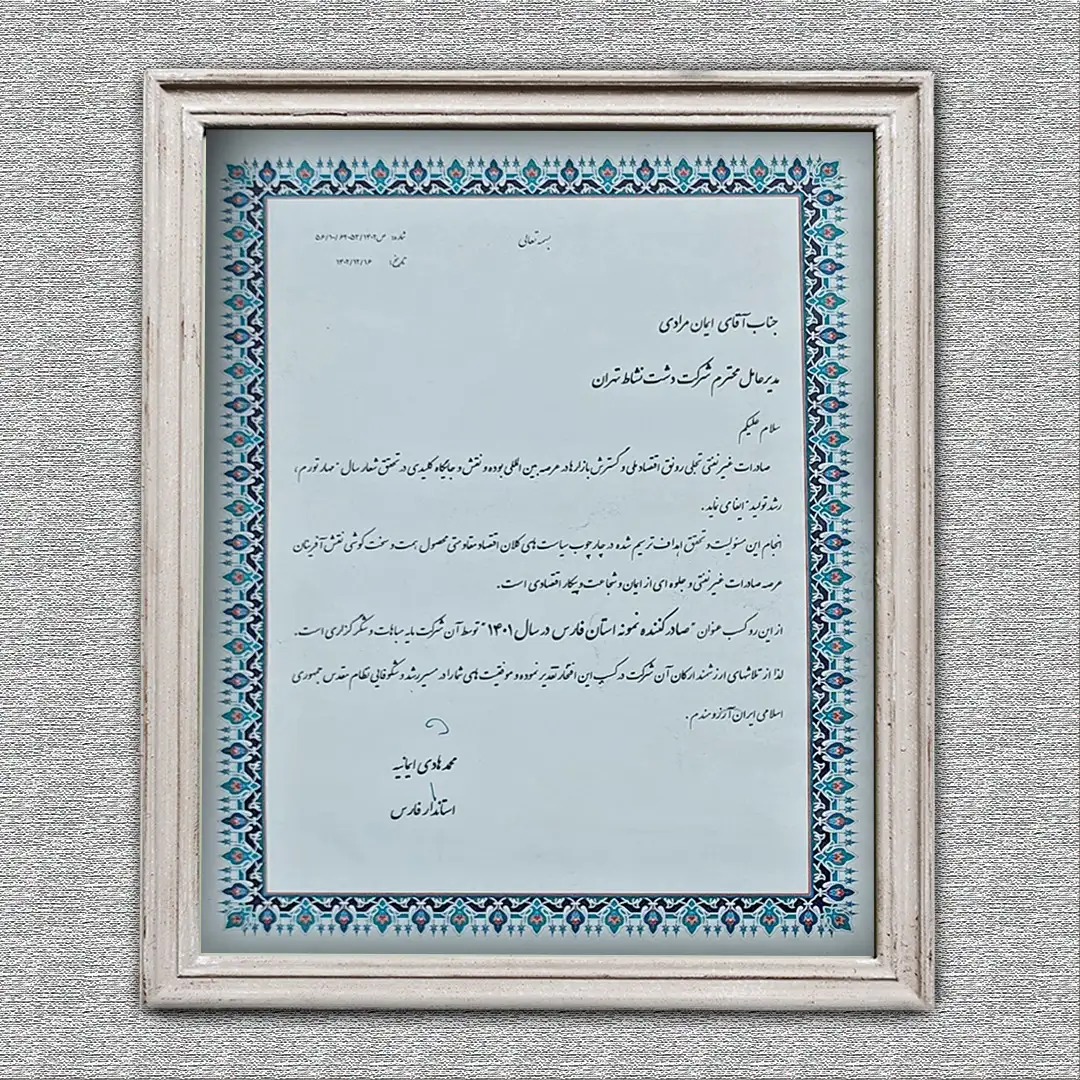 بسمه تعالی
شماره: ص/۱۴۰۲/۶۴۰۵۲/۵۶/۱۰
تاریخ: ۱۴۰۲/۱۲/۱۶
جناب آقای ایمان مرادی
مدیرعامل محترم شرکت دشت نشاط تهران
سلام علیکم
صادرات غیرنفتی تجلی رونق اقتصاد ملی و گسترش بازارها در عرصه بین المللی بوده و نقش و جایگاه کلیدی در تحقق شعار سال "مهار تورم،
رشد تولید" ایفا می نماید.
انجام این مسئولیت و تحقق اهداف ترسیم شده در چارچوب سیاست های کلان اقتصاد مقاومتی محصول همت و سخت کوشی نقش آفرینان
عرصه صادرات غیرنفتی و جلوه ای از ایمان و شجاعت و پیکار اقتصادی است.
از این رو کسب عنوان "صادرکننده نمونه استان فارس در سال ۱۴۰۱" توسط آن شرکت مایه مباهات و شکرگزاری است.
لذا از تلاشهای ارزشمند ارکان آن شرکت در کسب این افتخار تقدیر نموده و موفقیت های شما را در مسیر رشد و شکوفایی نظام مقدس جمهوری
اسلامی ایران آرزومندم.
محمد هادی ایمانیه
استاندار فارس